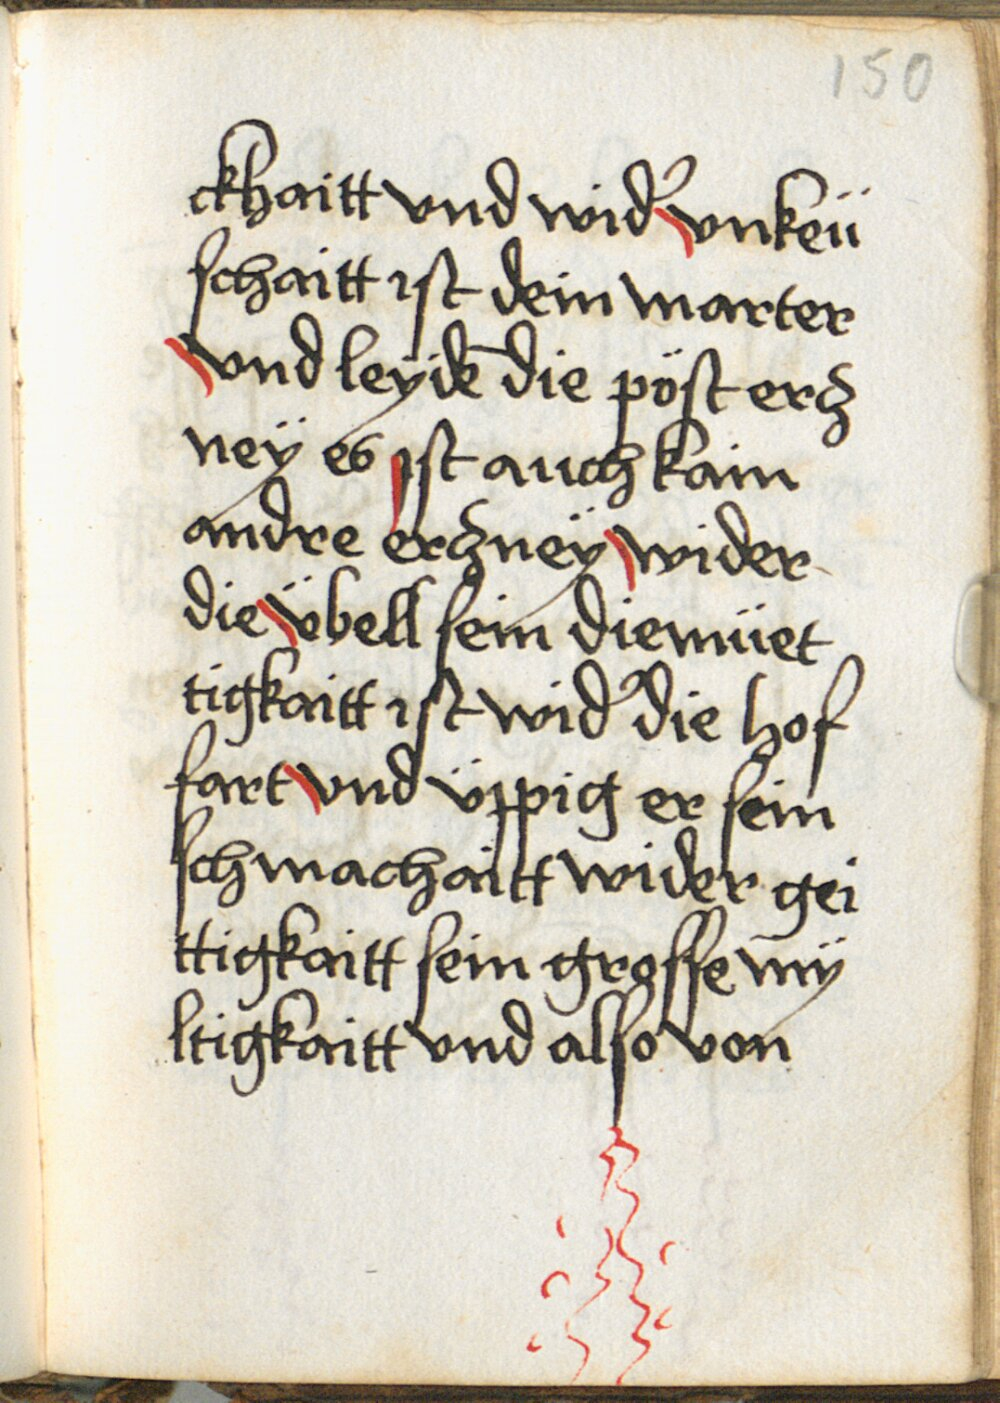 150
ckhaitt vnd wid' vnkeü
schaitt ist dein marter
vnd leydē die pöst ercz
neÿ es ist auch kain
andre erczneÿ wider
die übell sein diemüet
tigkaitt ist wid' die hof
fart vnd üppig er sein
schmachaitt wider gei
ttigkaitt sein grosse mÿ
ltigkaitt vnd also von